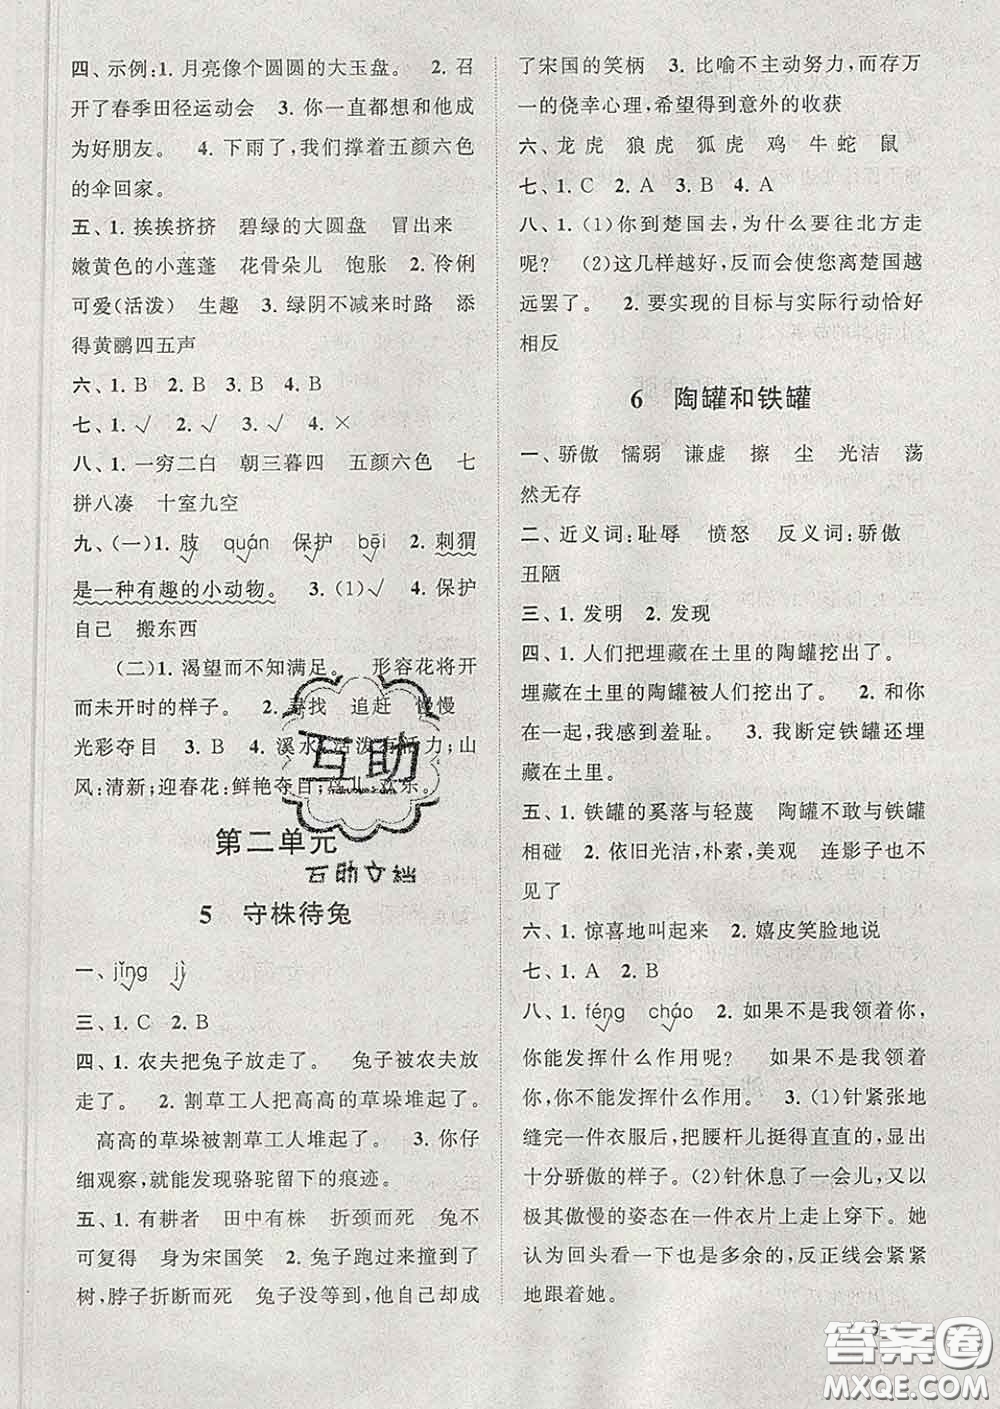 四、示例:1. 月亮像个圆圆的大玉盘。 2. 召
开了春季田径运动会 3. 你一直都想和他成
为好朋友。 4. 下雨了,我们撑着五颜六色
的伞回家。
五、1. 挨挨挤挤 碧绿的大圆盘 冒出来
嫩黄色的小莲蓬 花骨朵儿 饱胀 2. 伶俐
可爱(活泼) 生趣 3. 绿阴不减来时路 添
得黄鹂四五声
六、1. B 2. B 3. B 4. B
七、1. √ 2. √ 3. √ 4. ×
八、1. 一穷二白 朝三暮四 五颜六色 七
拼八凑 十室九空
九、(一)1. 肢 quán 保护 bēi 2. 刺猬
是一种有趣的小动物。 3. (1)√ 4. 保护
自己 搬东西
(二)1. 渴望而不知满足。 形容花将开
而未开时的样子。 2. 寻找 追赶 慢慢
光彩夺目 3. B 4. 溪水:活泼有活力;山
风:清新;迎春花:鲜艳夺目;鸟儿:欢乐。
第二单元
5 守株待兔
一、jǐng jì
三、1. C 2. B
四、1. 农夫把兔子放走了。 兔子被农夫放
走了。 2. 割草工人把高高的草垛堆起了。
高高的草垛被割草工人堆起了。 3. 你仔
细观察,就能发现骆驼留下的痕迹。
五、1. 有耕者 田中有株 折颈而死 兔不
可复得 身为宋国笑 2. 兔子跑过来撞到了
树,脖子折断而死 兔子没等到,他自己却成
了宋国的笑柄 3. 比喻不主动努力,而存万
一的侥幸心理,希望得到意外的收获
六、龙 虎 狼 虎 狐 虎 鸡 牛 蛇 鼠
七、1. C 2. A 3. B 4. A
八、1. (1)你到楚国去,为什么要往北方走
呢? (2)这几样越好,反而会使您离楚国越
远罢了。 2. 要实现的目标与实际行动恰好
相反
6 陶罐和铁罐
一、骄傲 懦弱 谦虚 擦 尘 光洁 荡
然无存
二、近义词:耻辱 愤怒 反义词:骄傲
丑陋
三、1. 发明 2. 发现
四、1. 人们把埋藏在土里的陶罐挖出了。
埋藏在土里的陶罐被人们挖出了。 2. 和你
在一起,我感到羞耻。 3. 我断定铁罐还埋
藏在土里。
五、1. 铁罐的奚落与轻蔑 陶罐不敢与铁罐
相碰 2. 依旧光洁,朴素,美观 连影子也不
见了
六、1. 惊喜地叫起来 2. 嬉皮笑脸地说
七、1. A 2. B
八、1. féng cháo 2. 如果不是我领着你,
你能发挥什么作用呢? 如果不是我领着
你,你不能发挥什么作用。 3. (1)针紧张地
缝完一件衣服后,把腰杆儿挺得直直的,显出
十分骄傲的样子。(2)针休息了一会儿,又以
极其傲慢的姿态在一件衣片上走上穿下。她
认为回头看一下也是多余的,反正线会紧紧
地跟着她。
互助
互助文档
3
答案圈
MXQE.COM